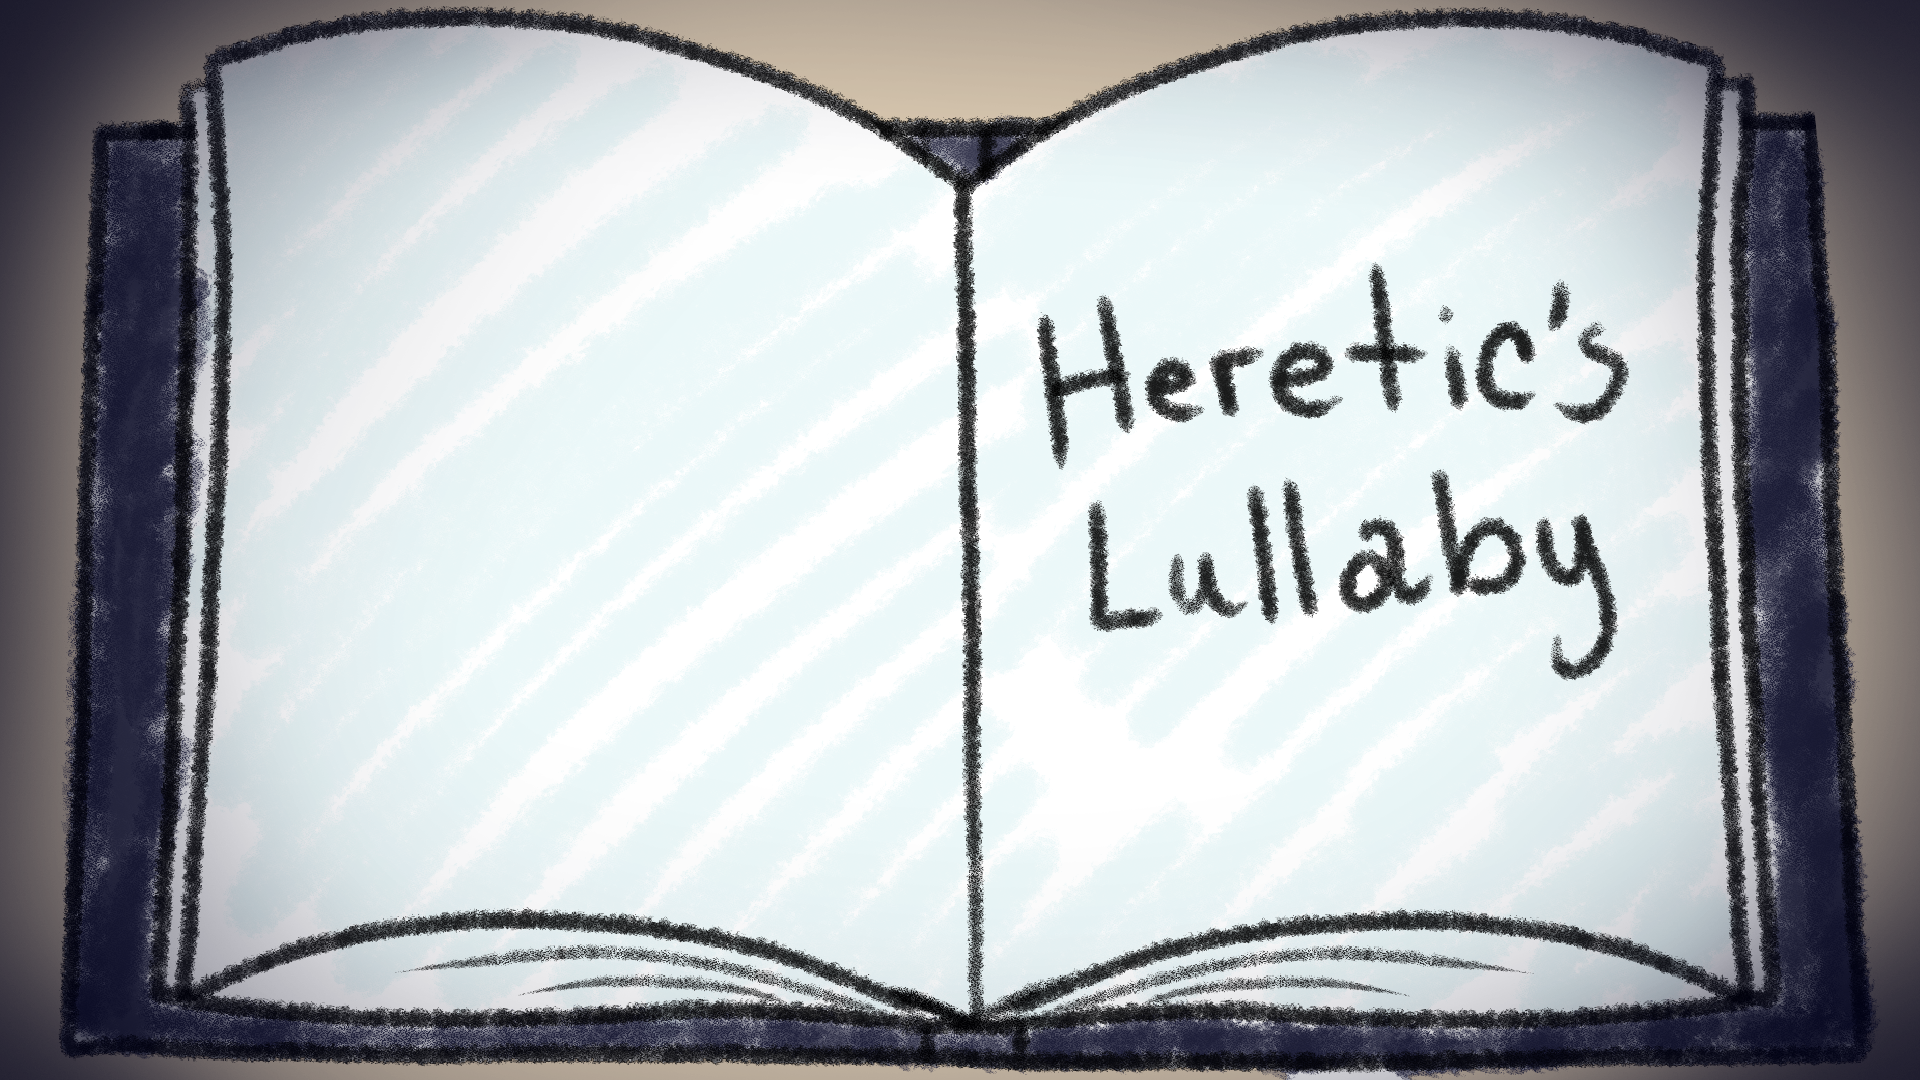 Heretic's
Lullaby